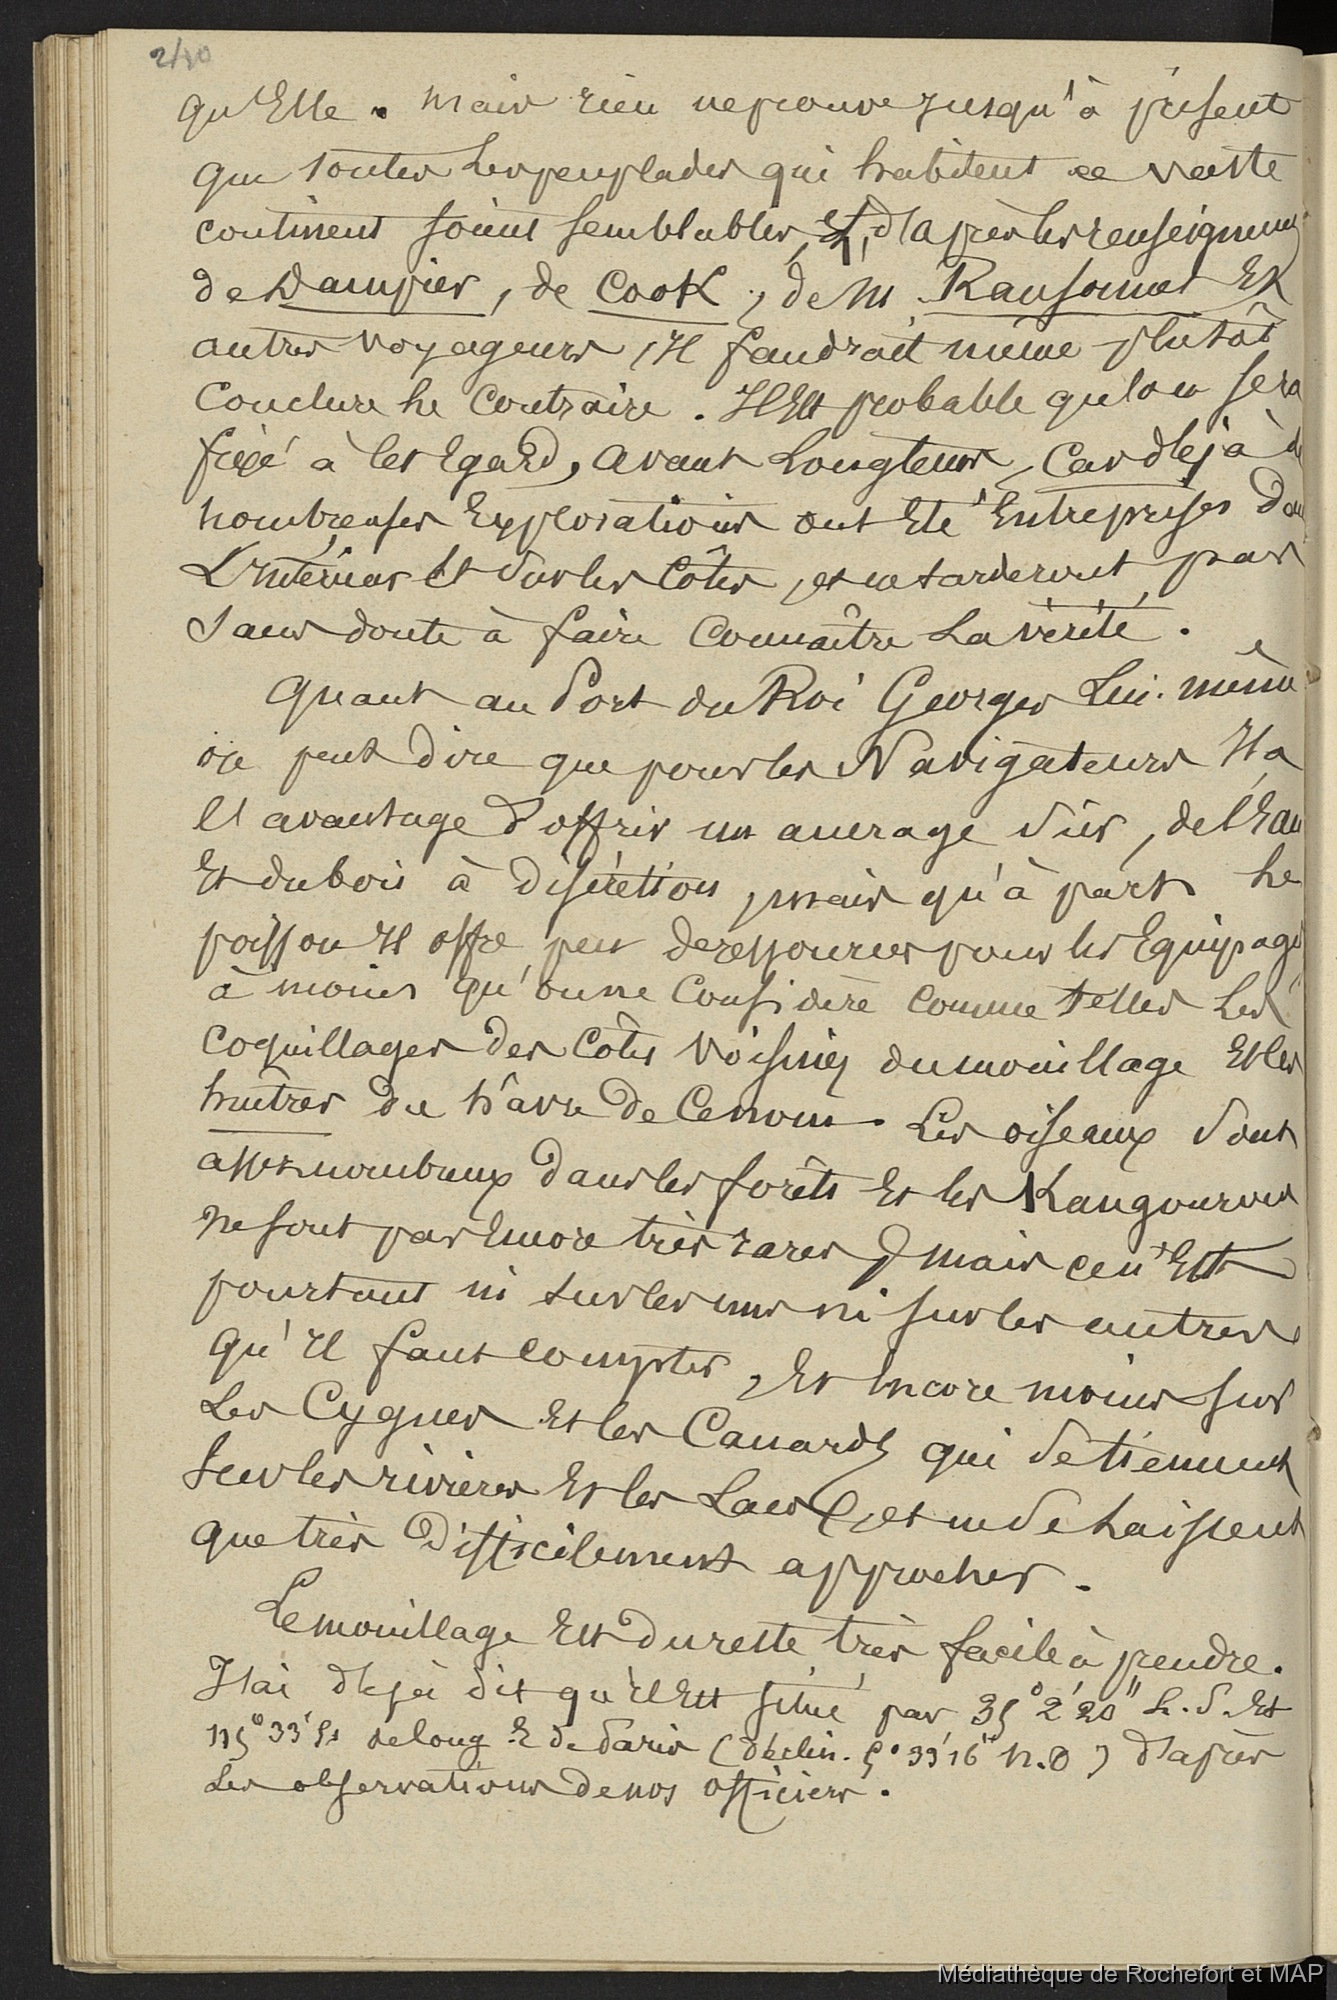 240
qu'Elle. Mais rien ne prouve jusqu'à présent
que toutes les peuplades qui habitent ce vaste
continent soient semblables, Et, d'après les renseignemens
de Dampier, de Cook, de M. Ransonnet Et
autres voyageurs, Il faudrait même plutôt
Conclure le Contraire. Il Est probable qu'on sera
fixé à cet Egard, avant Longtems, Car déjà de
nombreuses Explorations ont Eté Entreprises dans
L'Intérieur Et sur les Côtes, et ne tarderont pas
Sans doute à faire Connaître La vérité.
Quant au Port du Roi Georges Lui-même
on peut dire que pour les Navigateurs Il a
l'avantage d'offrir un ancrage sûr, de l'Eau
Et du bois à discrétion, mais qu'à part le
poisson Il offre peu de ressources pour les Equipages
à moins qu'on ne Considère comme telles Les
coquillages des Côtes voisines du mouillage Et les
huîtres du hâvre de . Les oiseaux sont
assez nombreux dans les forêts Et les Kangourous
ne sont pas Encore très rares, mais ce n'Est
pourtant ni sur les uns ni sur les autres
qu'Il faut compter, Et Encore moins sur
Les Cygnes Et les Canards qui se tiennent
sur les rivières Et les Lacs, et ne se laissent
que très difficilement approcher.
Le mouillage Est du reste très facile à prendre.
J'ai déjà dit qu'il Est situé par 35° 2' 20" L. S. Et
115° 33' de long. E de Paris (déclin. 5° 33' 16" N.O) d'après
Les observations de nos officiers.
Médiathèque de Rochefort et MAP